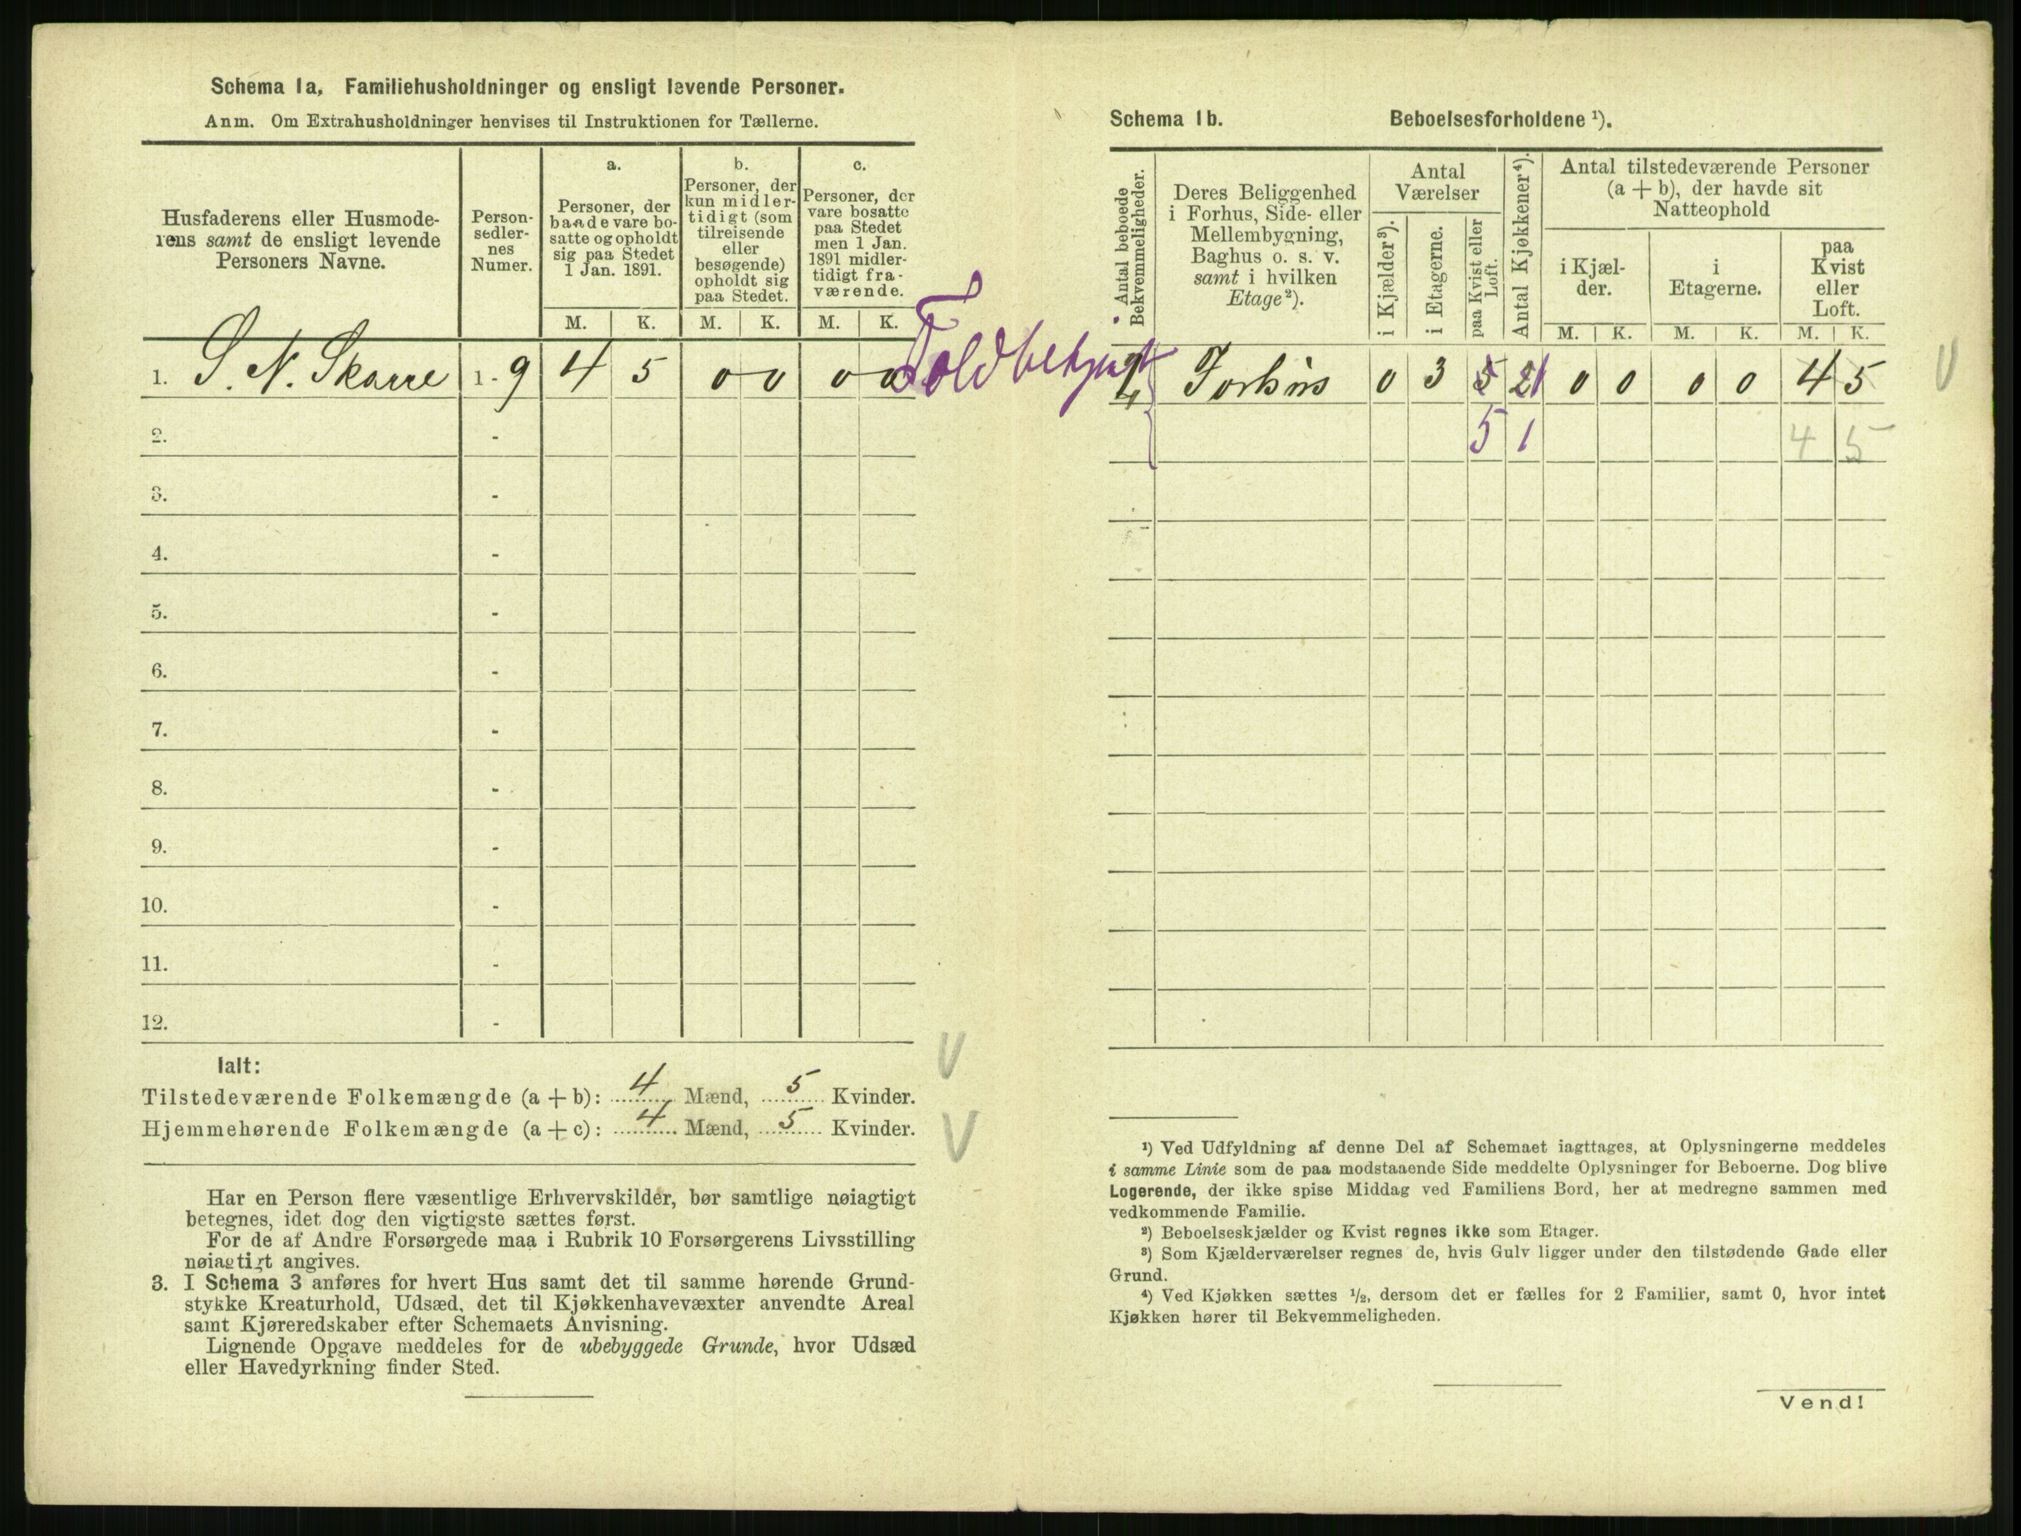 Schema 1a, Familiehusholdninger og ensligt levende Personer.
Anm. Om Extrahusholdninger henvises til Instruktionen for Tællerne.
Husfaderens eller Husmode-
rens samt de ensligt levende
Personers Navne.
Person-
sedler-
nes
Numer.
a.
Personer, der
baade vare bo-
satte og opholdt
sig paa Stedet
1 Jan. 1891.
b.
Personer, der
kun midler-
tidigt (som
tilreisende
eller
besøgende)
opholdt sig
paa Stedet.
c.
Personer, der
vare bosatte
paa Stedet
men 1 Jan.
1891 midler-
tidigt fra-
værende.
M. K. M. K. M. K.
1. S. N. Skarre 1 - 9 4 5 0 0 0 0
Toldbetjent
2. -
3. -
4. -
5. -
6. -
7. -
8. -
9. -
10. -
11. -
12. -
Ialt:
Tilstedeværende Folkemængde (a + b): 4 Mænd, 5 Kvinder.
Hjemmehørende Folkemængde (a + c): 4 Mænd, 5 Kvinder.
Har en Person flere væsentlige Erhvervskilder, bør samtlige nøiagtigt
betegnes, idet dog den vigtigste sættes først.
For de af Andre Forsørgede maa i Rubrik 10 Forsørgerens Livsstilling
nøiagtigt angives.
3. I Schema 3 anføres for hvert Hus samt det til samme hørende Grund-
stykke Kreaturhold, Udsæd, det til Kjøkkenhavevæxter anvendte Areal
samt Kjøreredskaber efter Schemaets Anvisning.
Lignende Opgave meddeles for de ubebyggede Grunde, hvor Udsæd
eller Havedyrkning finder Sted.
Schema 1b. Beboelsesforholdene ¹).
Antal beboede
Bekvemmeligheder.
Deres Beliggenhed
i Forhus, Side- eller
Mellembygning,
Baghus o. s. v.
samt i hvilken
Etage²).
Antal
Værelser
i Kjælder³).
i Etagerne.
paa Kvist eller
Loft.
Antal Kjøkkener⁴).
Antal tilstedeværende Personer
(a + b), der havde sit
Natteophold
i Kjæl-
der.
i
Etagerne.
paa
Kvist
eller
Loft.
M. K. M. K. M. K.
Forhus 0 3 5 21 0 0 0 0 4 5
5 1 4 5
¹) Ved Udfyldning af denne Del af Schemaet iagttages, at Oplysningerne meddeles
i samme Linie som de paa modstaaende Side meddelte Oplysninger for Beboerne. Dog blive
Logerende, der ikke spise Middag ved Familiens Bord, her at medregne sammen med
vedkommende Familie.
²) Beboelseskjælder og Kvist regnes ikke som Etager.
³) Som Kjælderværelser regnes de, hvis Gulv ligger under den tilstødende Gade eller
Grund.
⁴) Ved Kjøkken sættes ½, dersom det er fælles for 2 Familier, samt 0, hvor intet
Kjøkken hører til Bekvemmeligheden.
Vend!